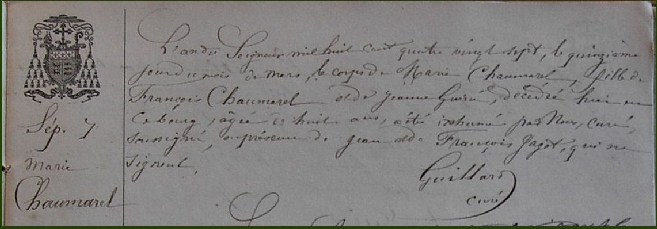 Sép. 7
Marie
Chaumarel
L'an du Seigneur mil huit cent quatre vingt sept, le quinzième
jour du mois de mars, le corps de Marie Chaumarel, fille
de François Chaumarel et de Jeanne Guiré, décédée hier en
ce bourg, âgée de huit ans, a été inhumé par Nous, curé,
soussigné, en présence de Jean et de François Jagot, qui ne
signent.
Guillard
curé